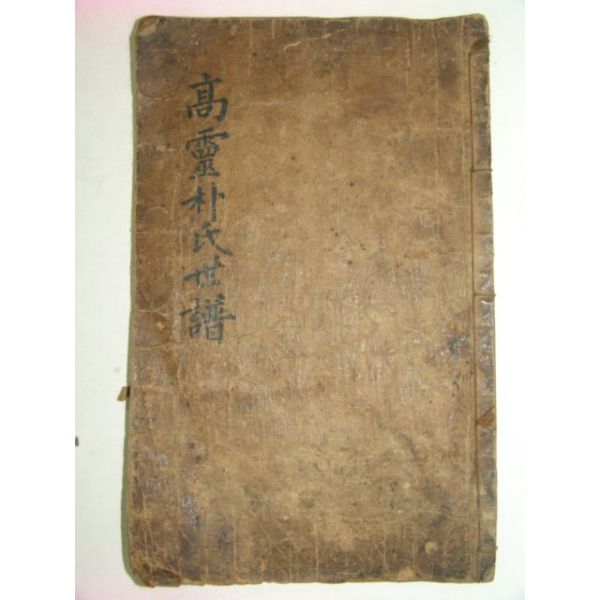 高靈朴氏世譜